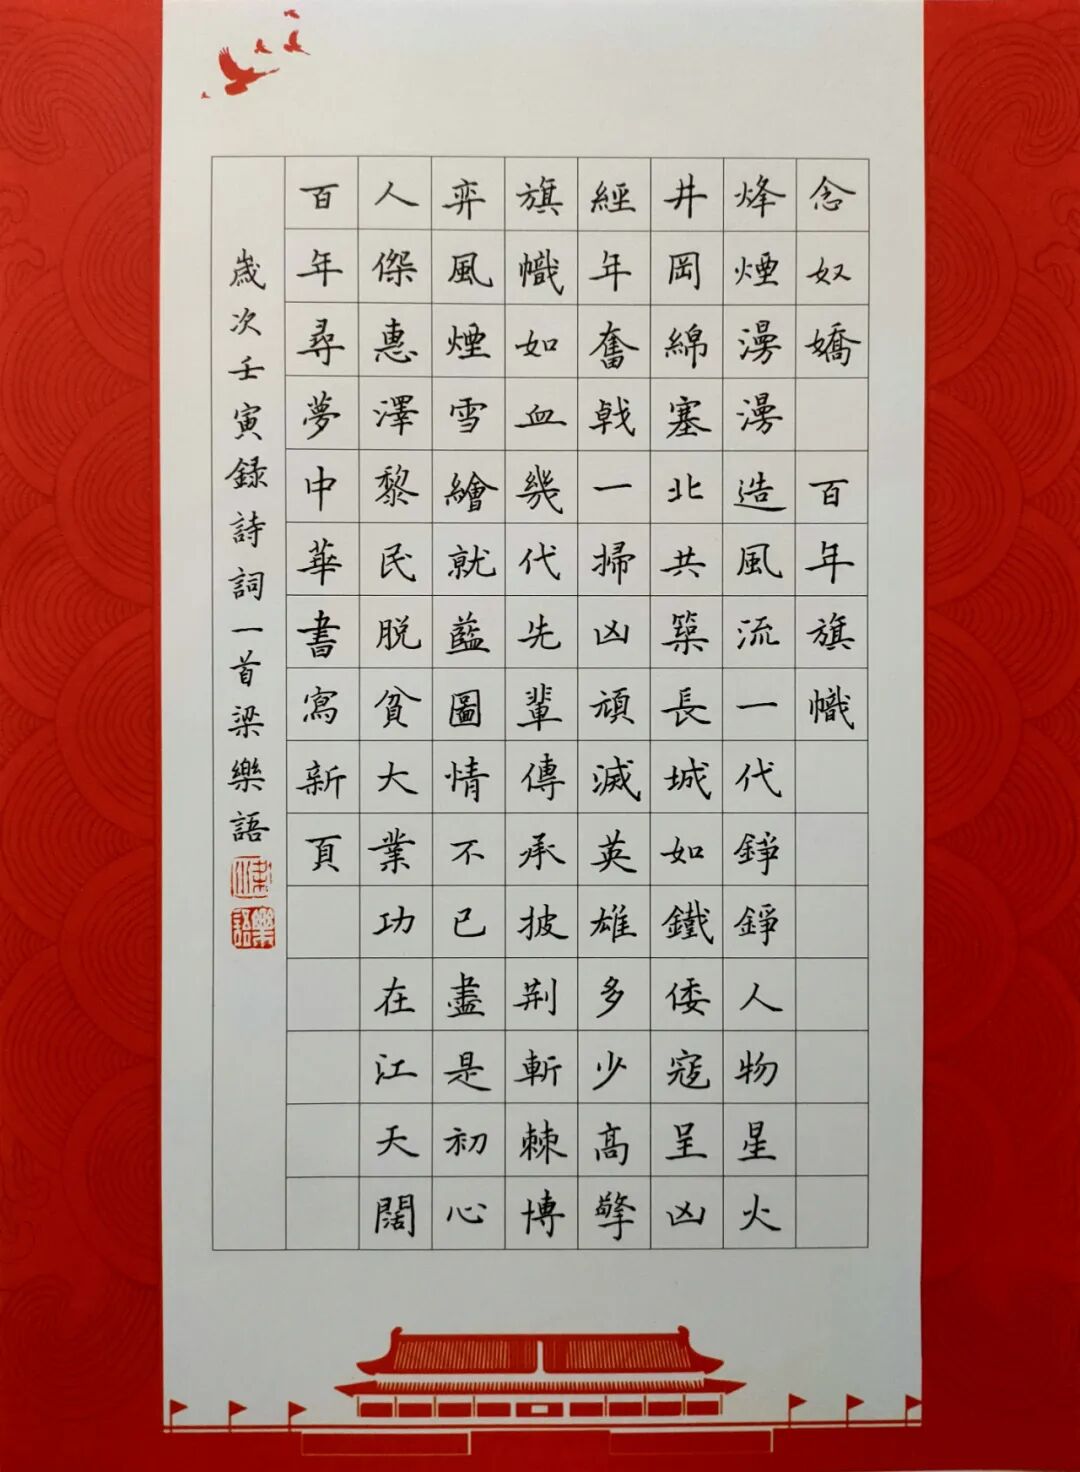 念奴嬌 百年旗幟
烽煙漫漫造風流一代錚錚人物星火
井岡綿塞北共築長城如鐵倭寇呈凶
經年奮戟一掃凶頑滅英雄多少高擎
旗幟如血幾代先輩傳承披荆斬棘博
弈風煙雪繪就藍圖情不已盡是初心
人傑惠澤黎民脱貧大業功在江天闊
百年尋夢中華書寫新頁
歲次壬寅録詩詞一首梁樂語
樂語